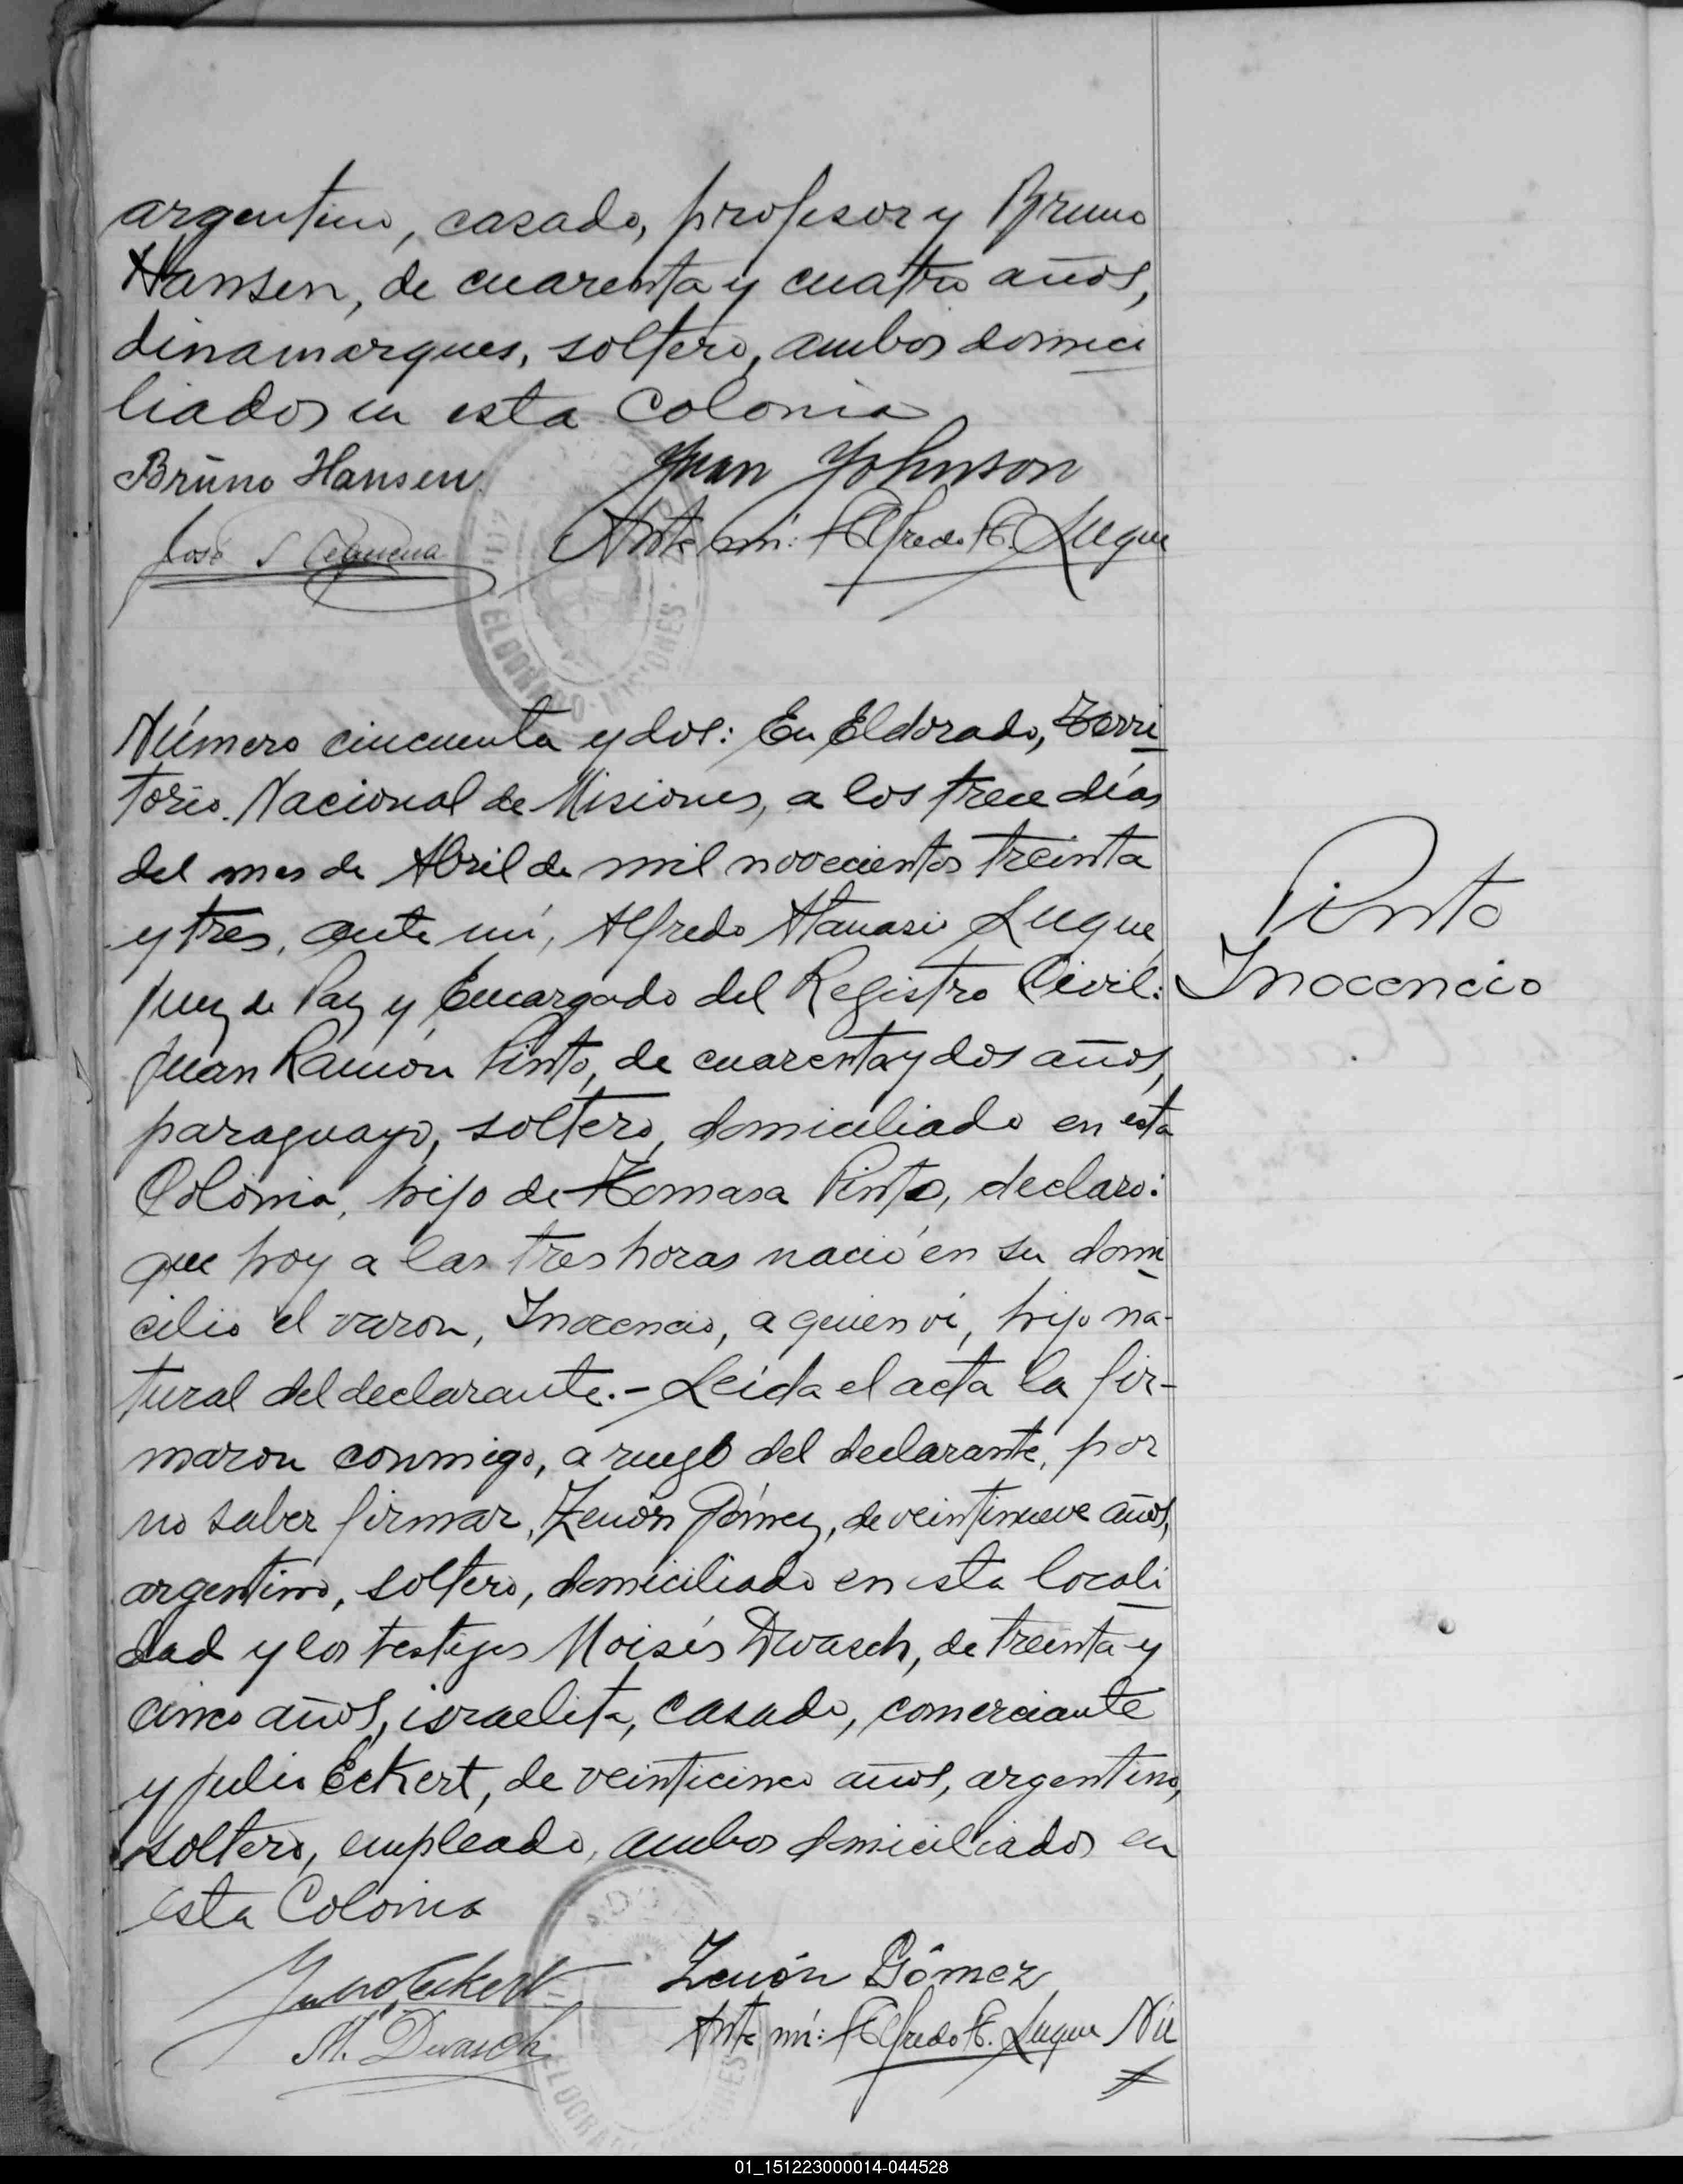 argentino, casado, profesor y Bruno
Hansen, de cuarenta y cuatro años,
dinamarques, soltero, ambos domici
liados en esta Colonia
Bruno Hansen Juan Johnson
José S Ante mí: Alfredo A. Luque
ELDORADO · MISIONES
Número cincuenta y dos: En Eldorado, Terri
torio Nacional de Misiones, a los trece días
del mes de Abril de mil novecientos treinta
y tres, ante mí, Alfredo Atanasio Luque
Juez de Paz y Encargado del Registro Civil:
Pinto
Inocencio
Juan Ramón Pinto, de cuarenta y dos años,
paraguayo, soltero, domiciliado en esta
Colonia, hijo de Tomasa Pinto, declaro:
que hoy a las tres horas nació en su domi
cilio el varon, Inocencio, a quien ví, hijo na-
tural del declarante.- Leida el acta la fir-
maron conmigo, a ruego del declarante, por
no saber firmar, Zenón Gómez, de veintinueve años,
argentino, soltero, domiciliado en esta locali
dad y los testigos Moisés Dwasch, de treinta y
cinco años, israelita, casado, comerciante
y Julio Eckert, de veinticinco años, argentino,
soltero, empleado, ambos domiciliados en
esta Colonia
Julio Eckert Zenón Gómez
M. Dwasch Ante mí: Alfredo A. Luque Nú
ELDORADO
01_151223000014-044528